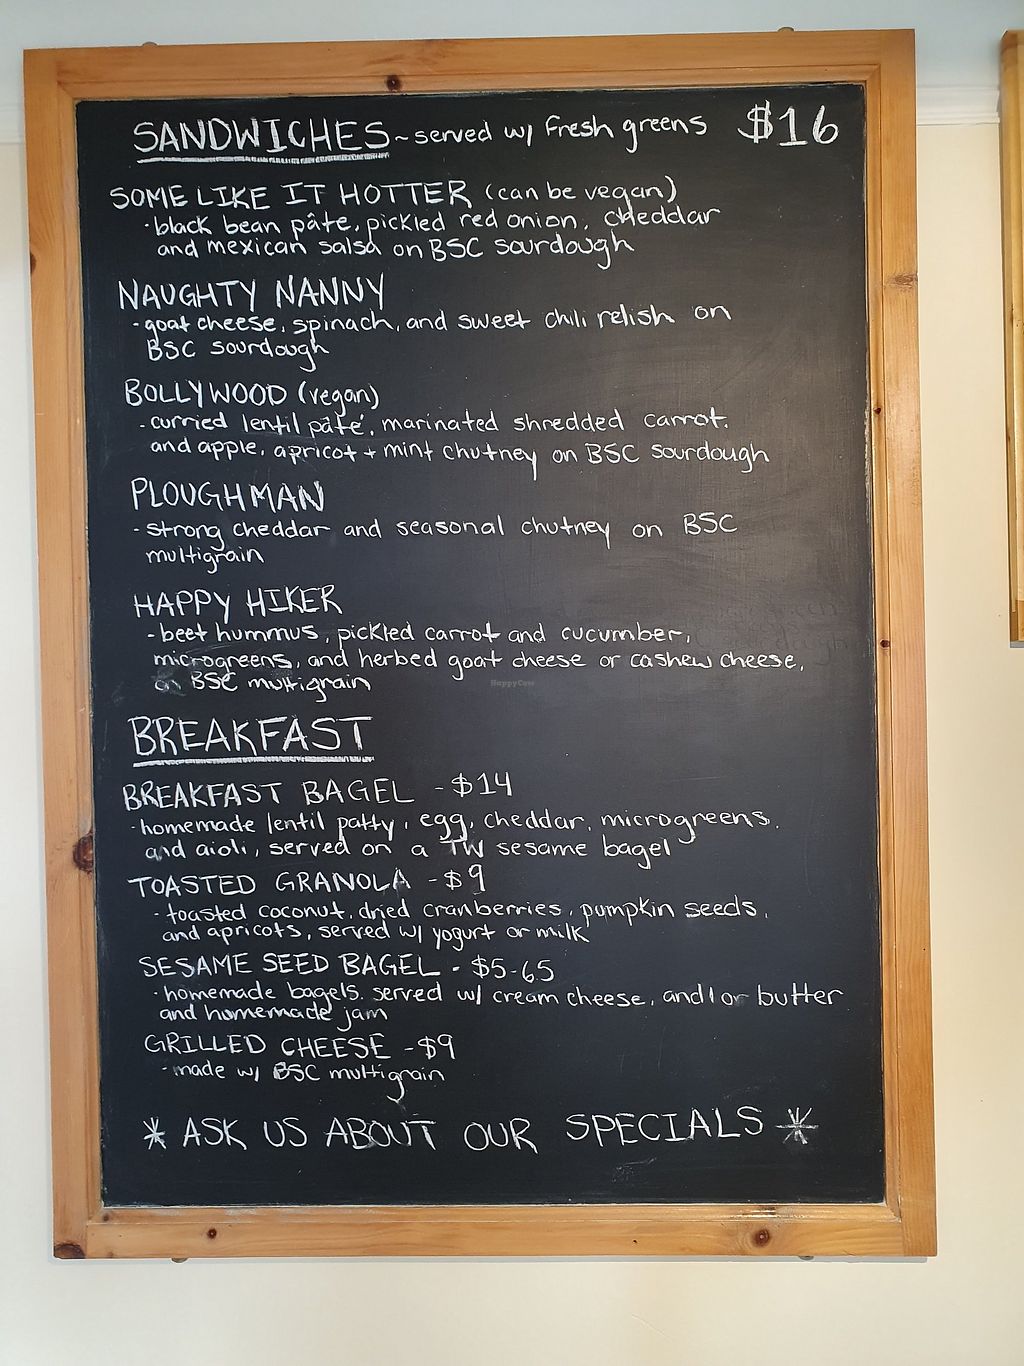 SANDWICHES ~ served w/ fresh greens $16
SOME LIKE IT HOTTER (can be vegan)
· black bean pâte, pickled red onion, cheddar
and mexican salsa on BSC sourdough
NAUGHTY NANNY
- goat cheese, spinach, and sweet chili relish on
BSC sourdough
BOLLYWOOD (vegan)
- curried lentil pâté, marinated shredded carrot,
and apple, apricot + mint chutney on BSC sourdough
PLOUGHMAN
- strong cheddar and seasonal chutney on BSC
multigrain
HAPPY HIKER
- beet hummus, pickled carrot and cucumber,
microgreens, and herbed goat cheese or cashew cheese,
on BSC multigrain
HappyCow
BREAKFAST
BREAKFAST BAGEL - $14
· homemade lentil patty, egg, cheddar, microgreens,
and aioli, served on a TW sesame bagel
TOASTED GRANOLA - $9
· toasted coconut, dried cranberries, pumpkin seeds,
and apricots, served w/ yogurt or milk
SESAME SEED BAGEL - $5-6.5
· homemade bagels, served w/ cream cheese, and/or butter
and homemade jam
GRILLED CHEESE - $9
- made w/ BSC multigrain
* ASK US ABOUT OUR SPECIALS *